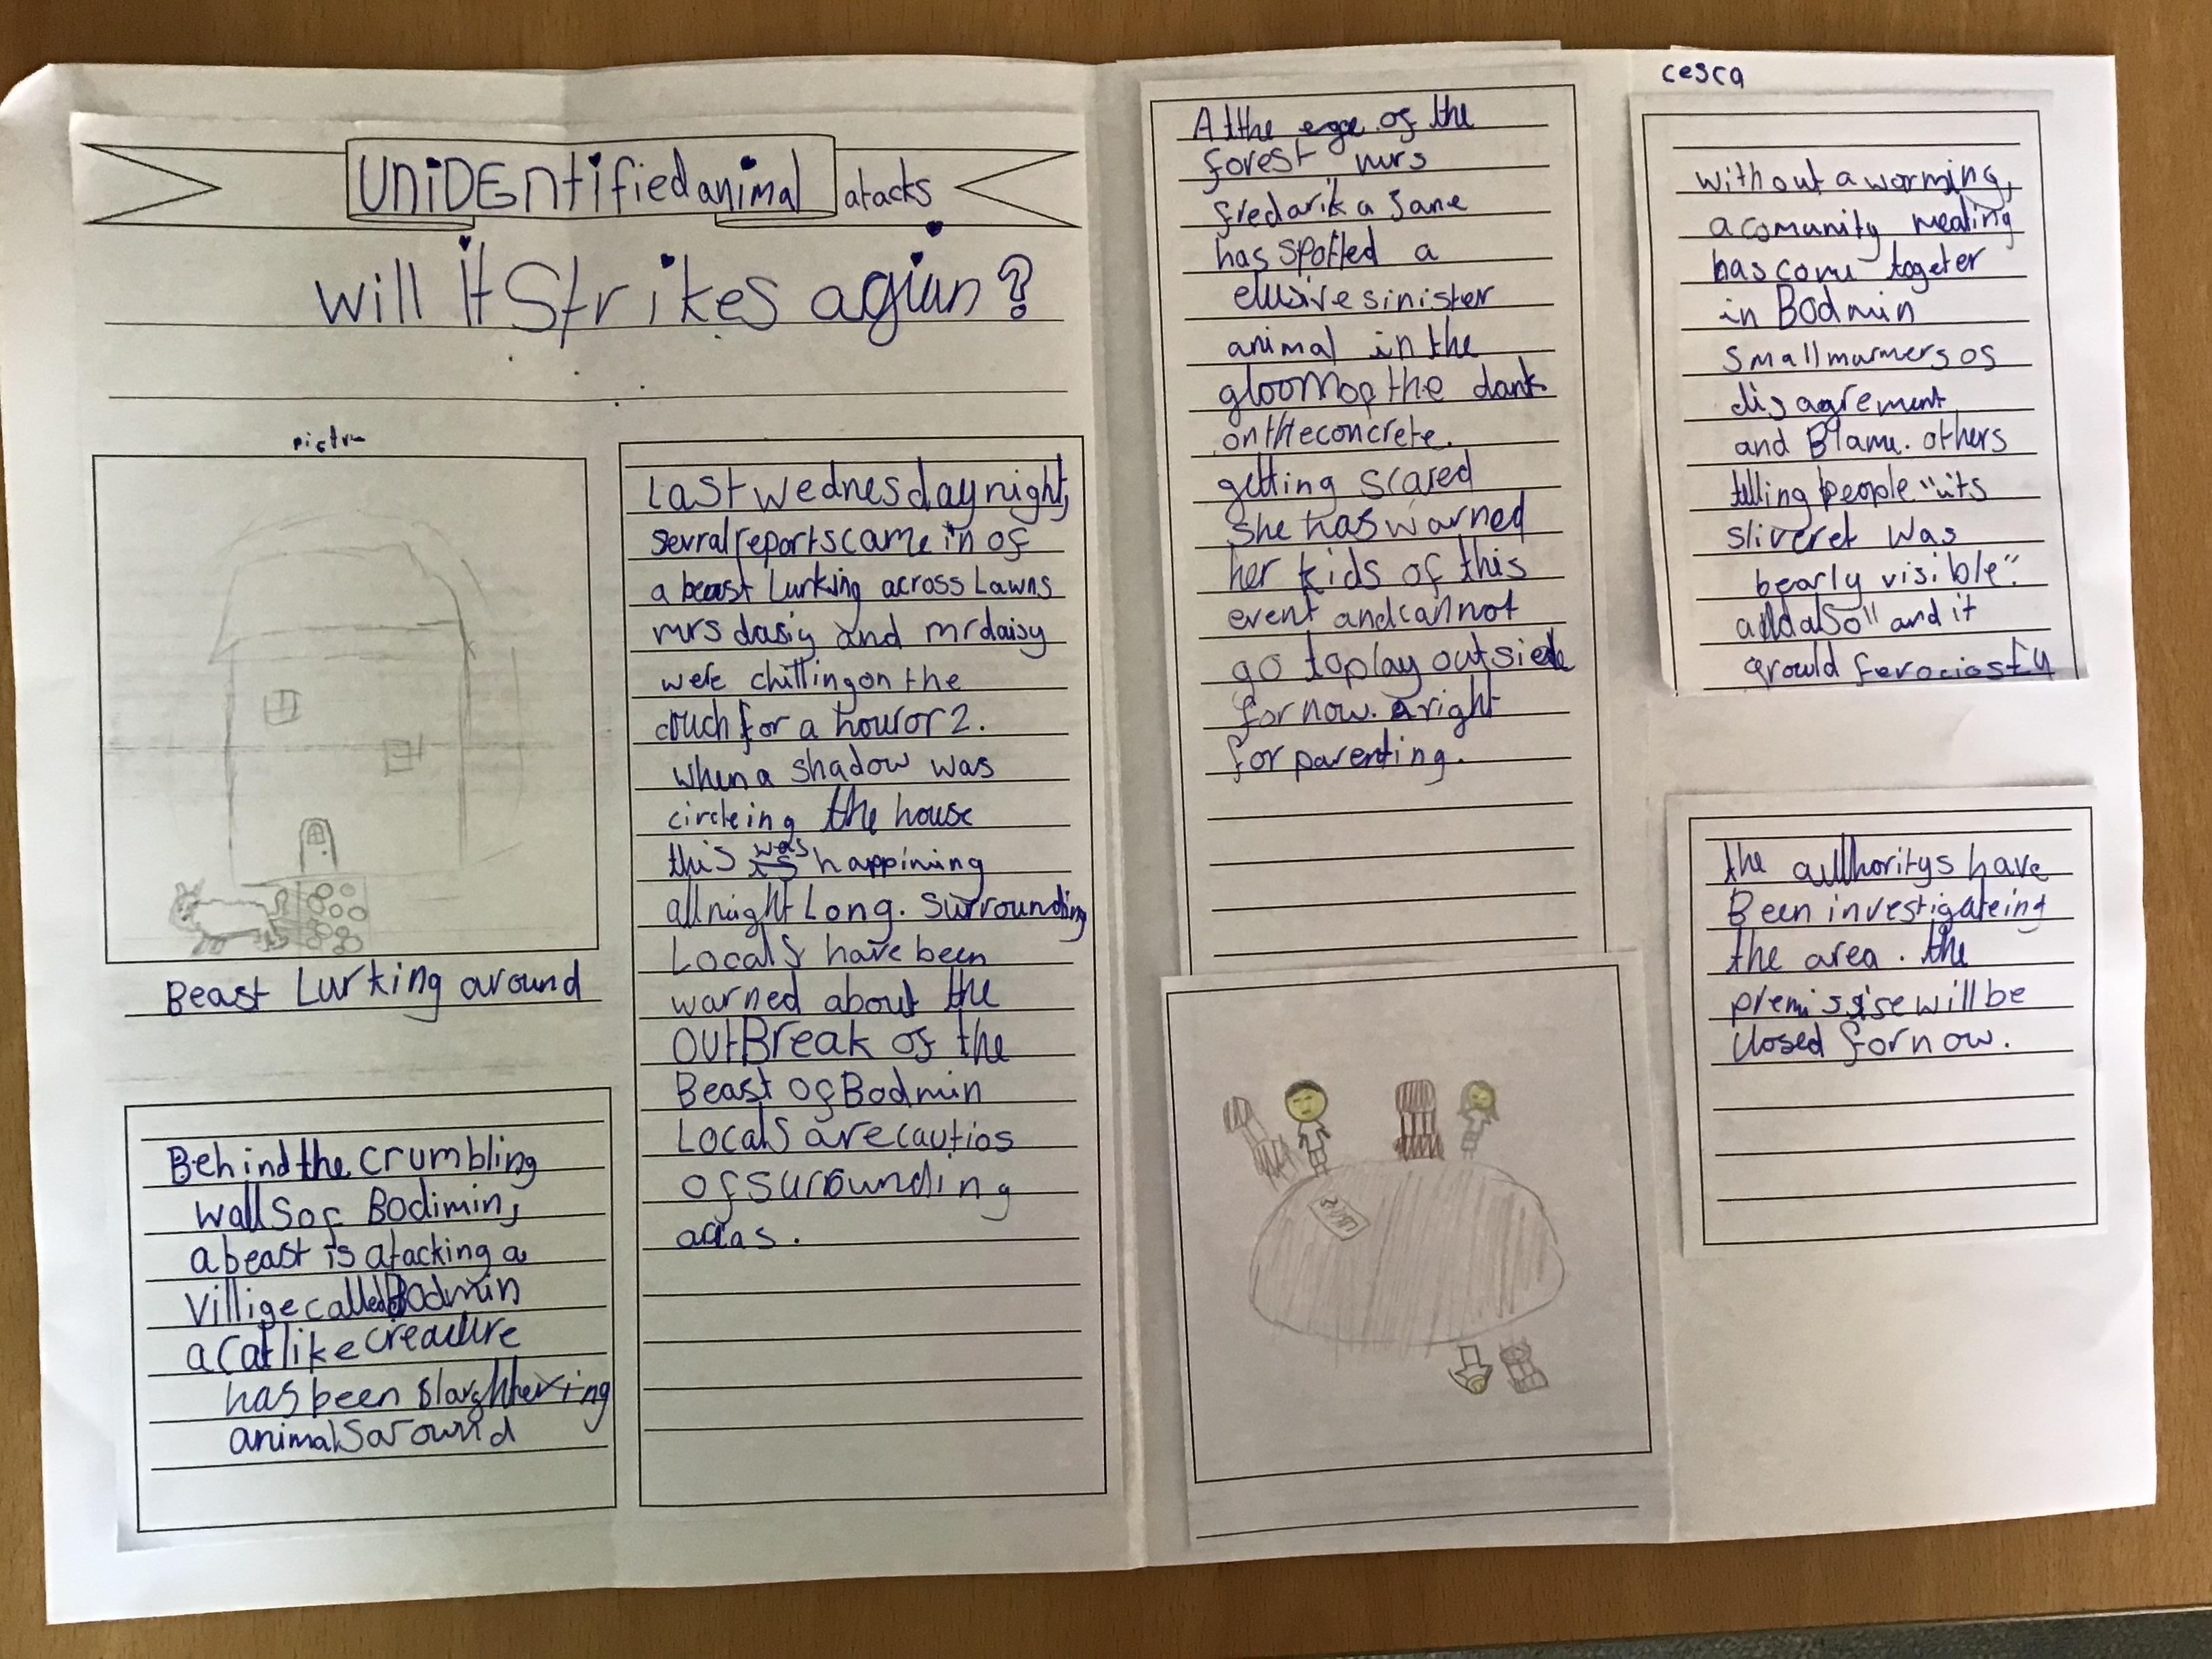 UNiDENtified animal atacks
will it Strikes agiun?
pictu
Beast Lurking around
Behind the crumbling
walls of Bodimin,
a beast is atacking a
Villige called Bodmin
a cat like creature
has been slaughtering
animals around
Last wednesday night,
sevral reports came in of
a beast Lurking across Lawns
mrs dasiy and mr daisy
were chilling on the
couch for a hour or 2.
when a shadow was
circleing the house
this was happining
all night Long. Surrounding
Locals have been
warned about the
outBreak of the
Beast of Bodmin
Locals are cautios
of surounding
areas.
At the edge of the
forest mrs
fredarika Jane
has spotted a
elusive sinister
animal in the
gloom of the dark
on the concrete.
getting scared
she has warned
her kids of this
event and cannot
go to play outside
for now. a right
for parenting.
cesca
without a worming,
a comunity mealing
has come togeter
in Bodmin
small murmers of
disagrement
and Blame. others
telling people "its
was
bearly visible".
and also " and it
grould ferociosty
the authoritys have
Been investigateing
the area. the
premissise will be
closed for now.